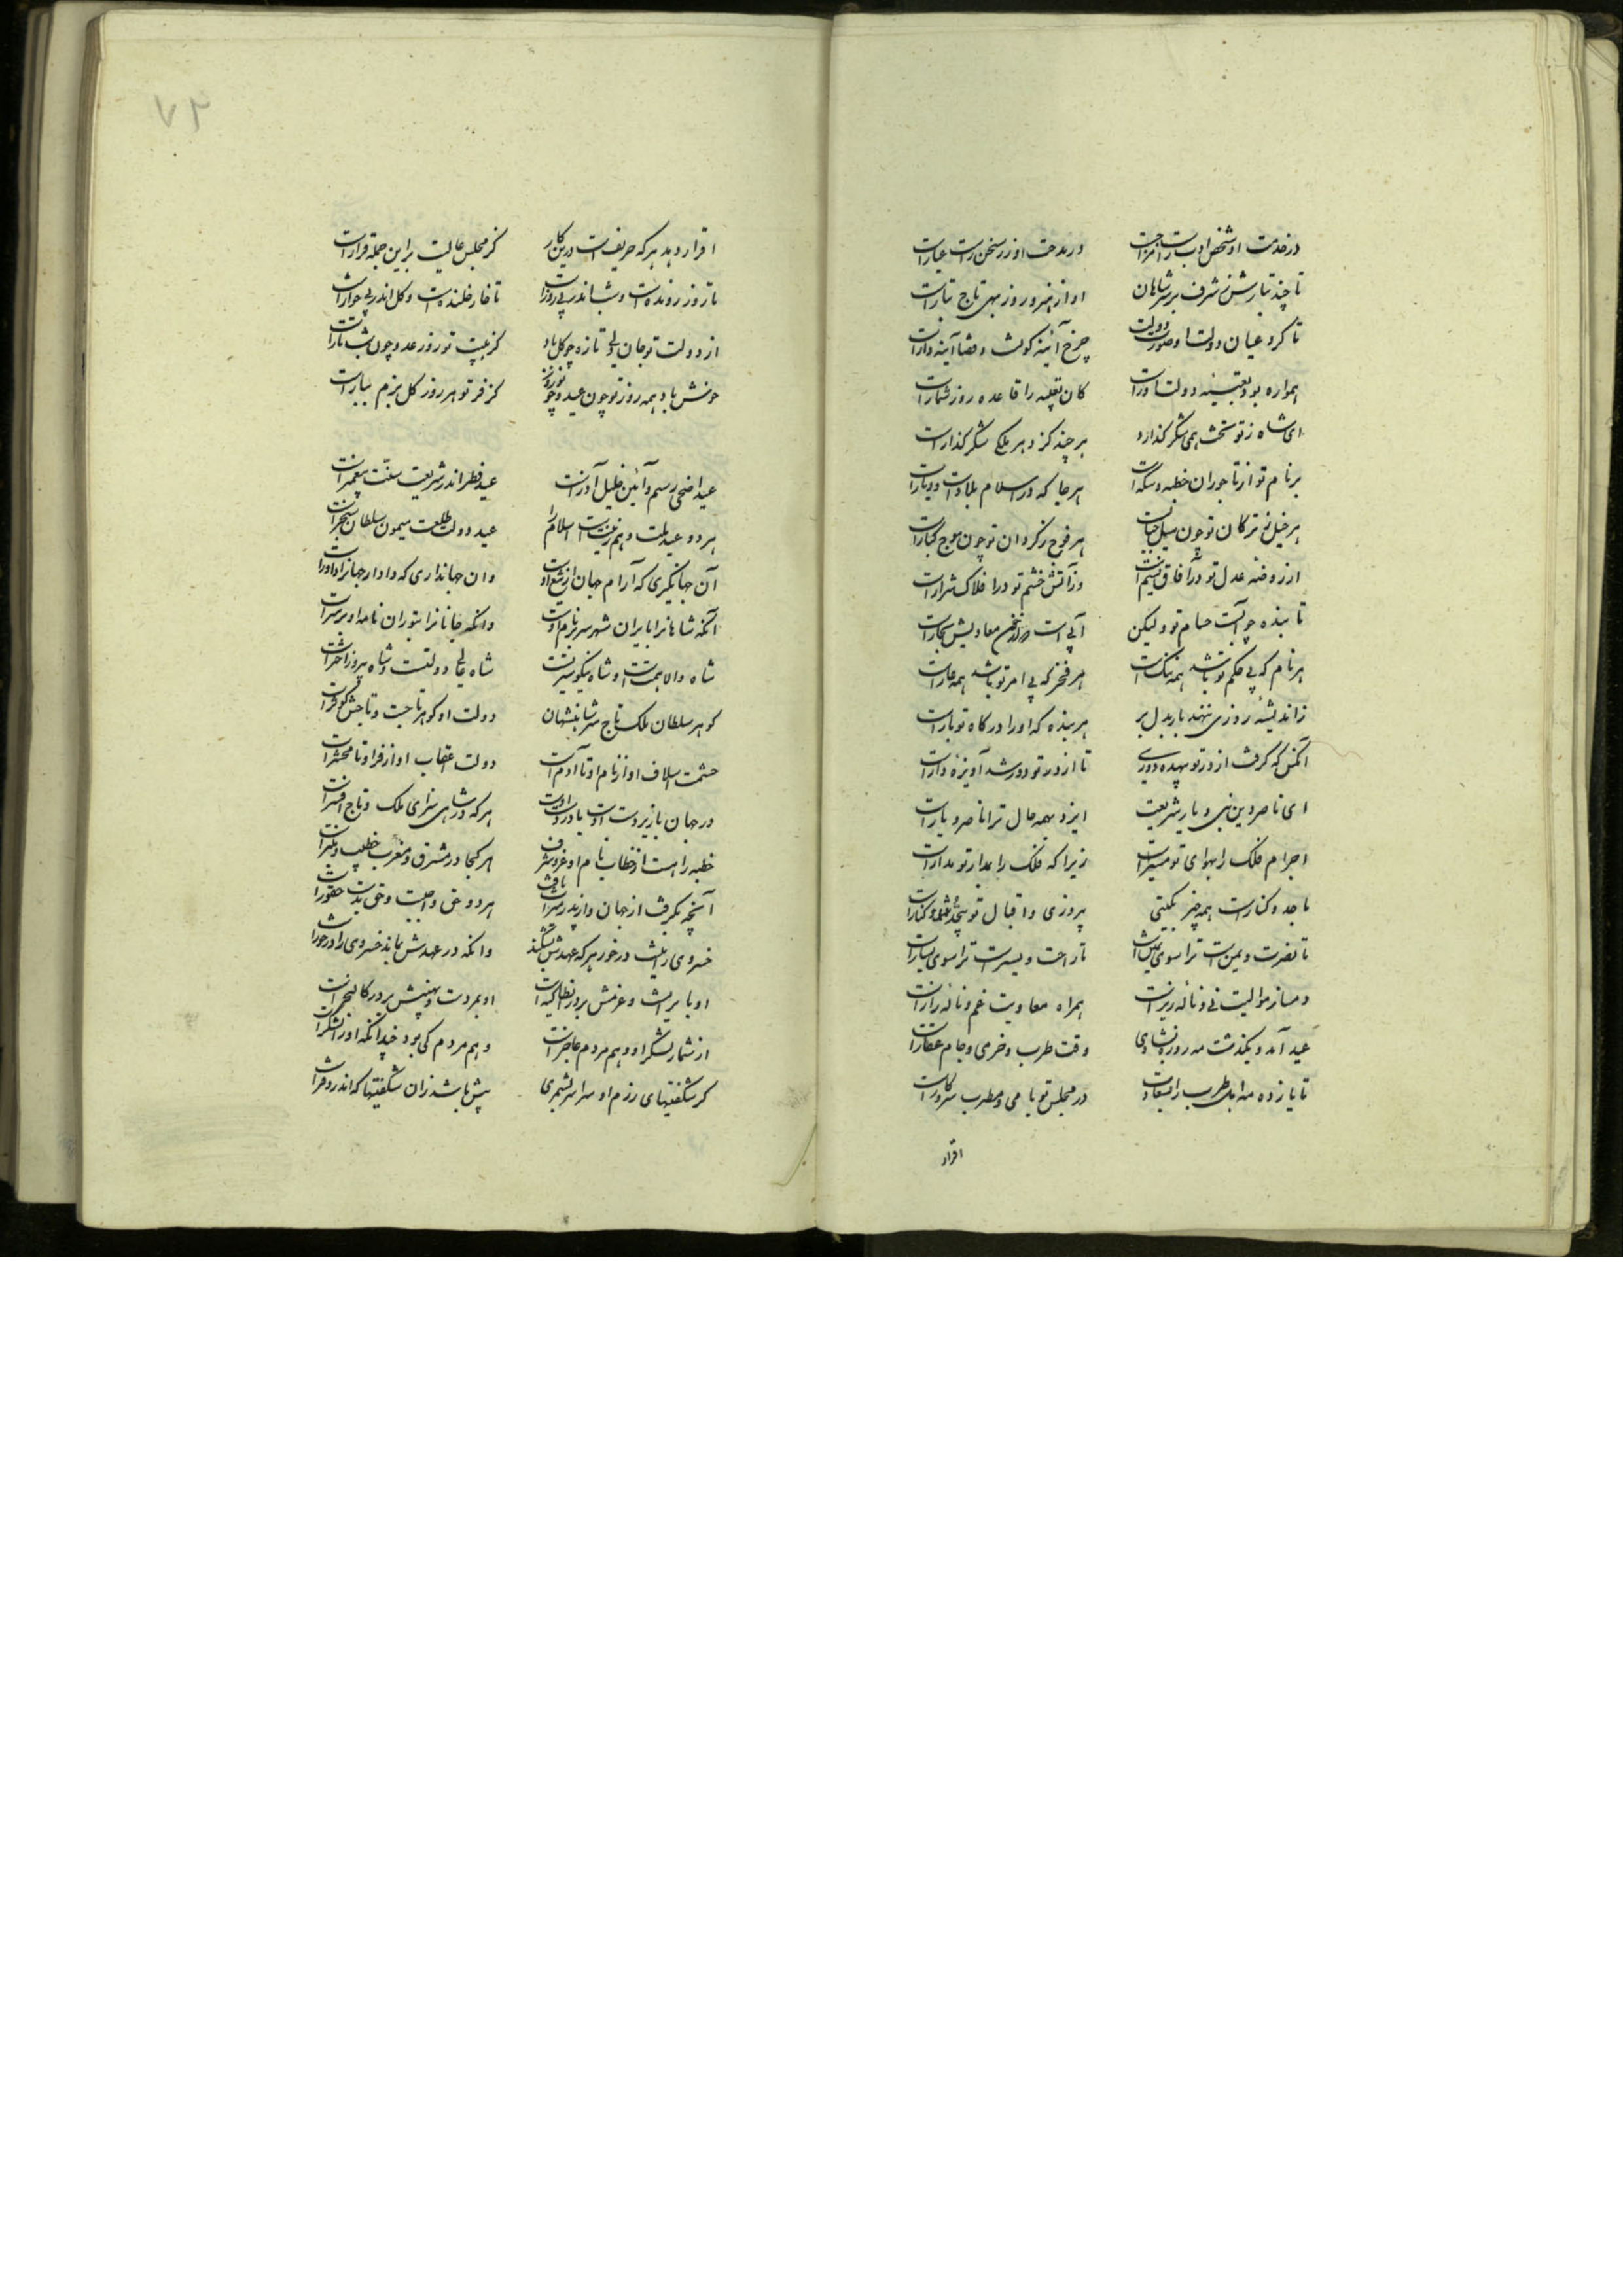 درخدمت او شخص ادب راست مزاجت در مدحت او زر سخن راست عیارات
تا چند تبارش ز شرف بر سر شاهان او از هنر و روز بهی تاج تبارات
تا کرد عیان دولت او صورت دولت چرخ آینه کونست و قضا آینه دارات
همواره بود تعبیه دولت او راست کان تعبیه را قاعده روز شمارات
ای شاه ز تو بخت همی شکر گذارد هر چند کزو هر ملکی شکر گذارات
بر نام تو از تاجوران خطبه و سکه است هر جا که در اسلام بلادست و دیارات
هر خیل ز ترکان تو چون سیل جبالست هر فوج ز گردان تو چون موج بحارات
از روضه عدل تو در آفاق نسیم است وز آتش خشم تو در افلاک شرارات
تابنده چو آبست حسام تو ولیکن آبی است که از خون معادیش بخارات
هر نام که بی حکم تو باشد همه ننگ است هر فخر که بی امر تو باشد همه عارات
ز اندیشه روزی ننهد بار بدل بر هر بنده که او را در کاه تو بارات
آنکس که گرفت از در تو بیهده دوری تا از در تو دور شد آویزه دارات
ای ناصر دین نبی و یار شریعت ایزد بهمه حال ترا ناصر و یارات
اجرام فلک را بهوای تو مسیرات زیرا که فلک را بمدار تو مدارات
با جد و کنارست همه چیز بگیتی پیروزی و اقبال تو بیحد و کنارات
تا نصرت و یمن است ترا سوی یمین است تا راحت و یسرست ترا سوی یسارات
دمساز موالیت نی و ناله زیرات همراه معادیت غم و ناله زارات
عید آمد و بگذشت مه روزه بشادی وقت طرب و خرمی و جام عقارات
تا یازده مه اهل طرب را بسعادت در مجلس تو با می و مطرب سر و کارات
اقرار
اقرار دهد هر که حریفست درین کار کز مجلس عالیت براین جمله قرارات
تا روز رونده است و شب اندر پی روزات تا خار خلنده است و گل اندر پی خارات
از دولت تو جان ولی تازه چو گل باد کز هیبت تو روز عدو چون شب تارات
خوش باد همه روز تو چون عید و چو نوروز کز فر تو هر روز گل بزم ببارات
عید اضحی رسم و آئین خلیل آزرست عید فطر اندر شریعت سنت پیغمبرات
هر دو عید ملت و هم زینت اسلام را عید دولت طلعت میمون سلطان سنجرات
آن جهانگیری که آرام جهان از تیغ اوست وان جهانداری که دادار جهانرا داورات
آنکه شاهانرا بایران شهر سر بر نام اوست وانکه خانانرا بتوران نامه او بر سرات
شاه والا همت است و شاه نیکو سیرتست شاه عالی دولتست و شاه پیروز اخترات
گوهر سلطان ملک تاج سر شاهنشهان دولت او گوهر تاجست و تاجش گوهرات
حشمت اسلاف او از نام او تا آدم است دولت اعقاب او از فر او تا محشرات
در جهان یا زیر دست اوست یا در دست اوست هر که در شاهی سزای ملک و تاج افسرات
خطبه را هست از خطاب نام او عز و شرف هر کجا در مشرق و مغرب خطیب و منبرات
آنچه بگرفت از جهان و از پدر میراث یافت هر دو حق واجبست و حق بدست حقورات
خسروی را نیست در خور هر که عهدش بشکند وانکه در عهدش بماند خسروی را در خورات
او بایرانست و عزمش بر در انطاکیه است او بمروست و نهیبش بر در کالنجرات
از شمار لشکر او وهم مردم عاجزات وهم مردم کی بود چندانکه او را لشکرات
گر شگفتیهای رزم او سراسر بشمری بیش باشد زان شگفتیها که اندر دفترات
۷۲